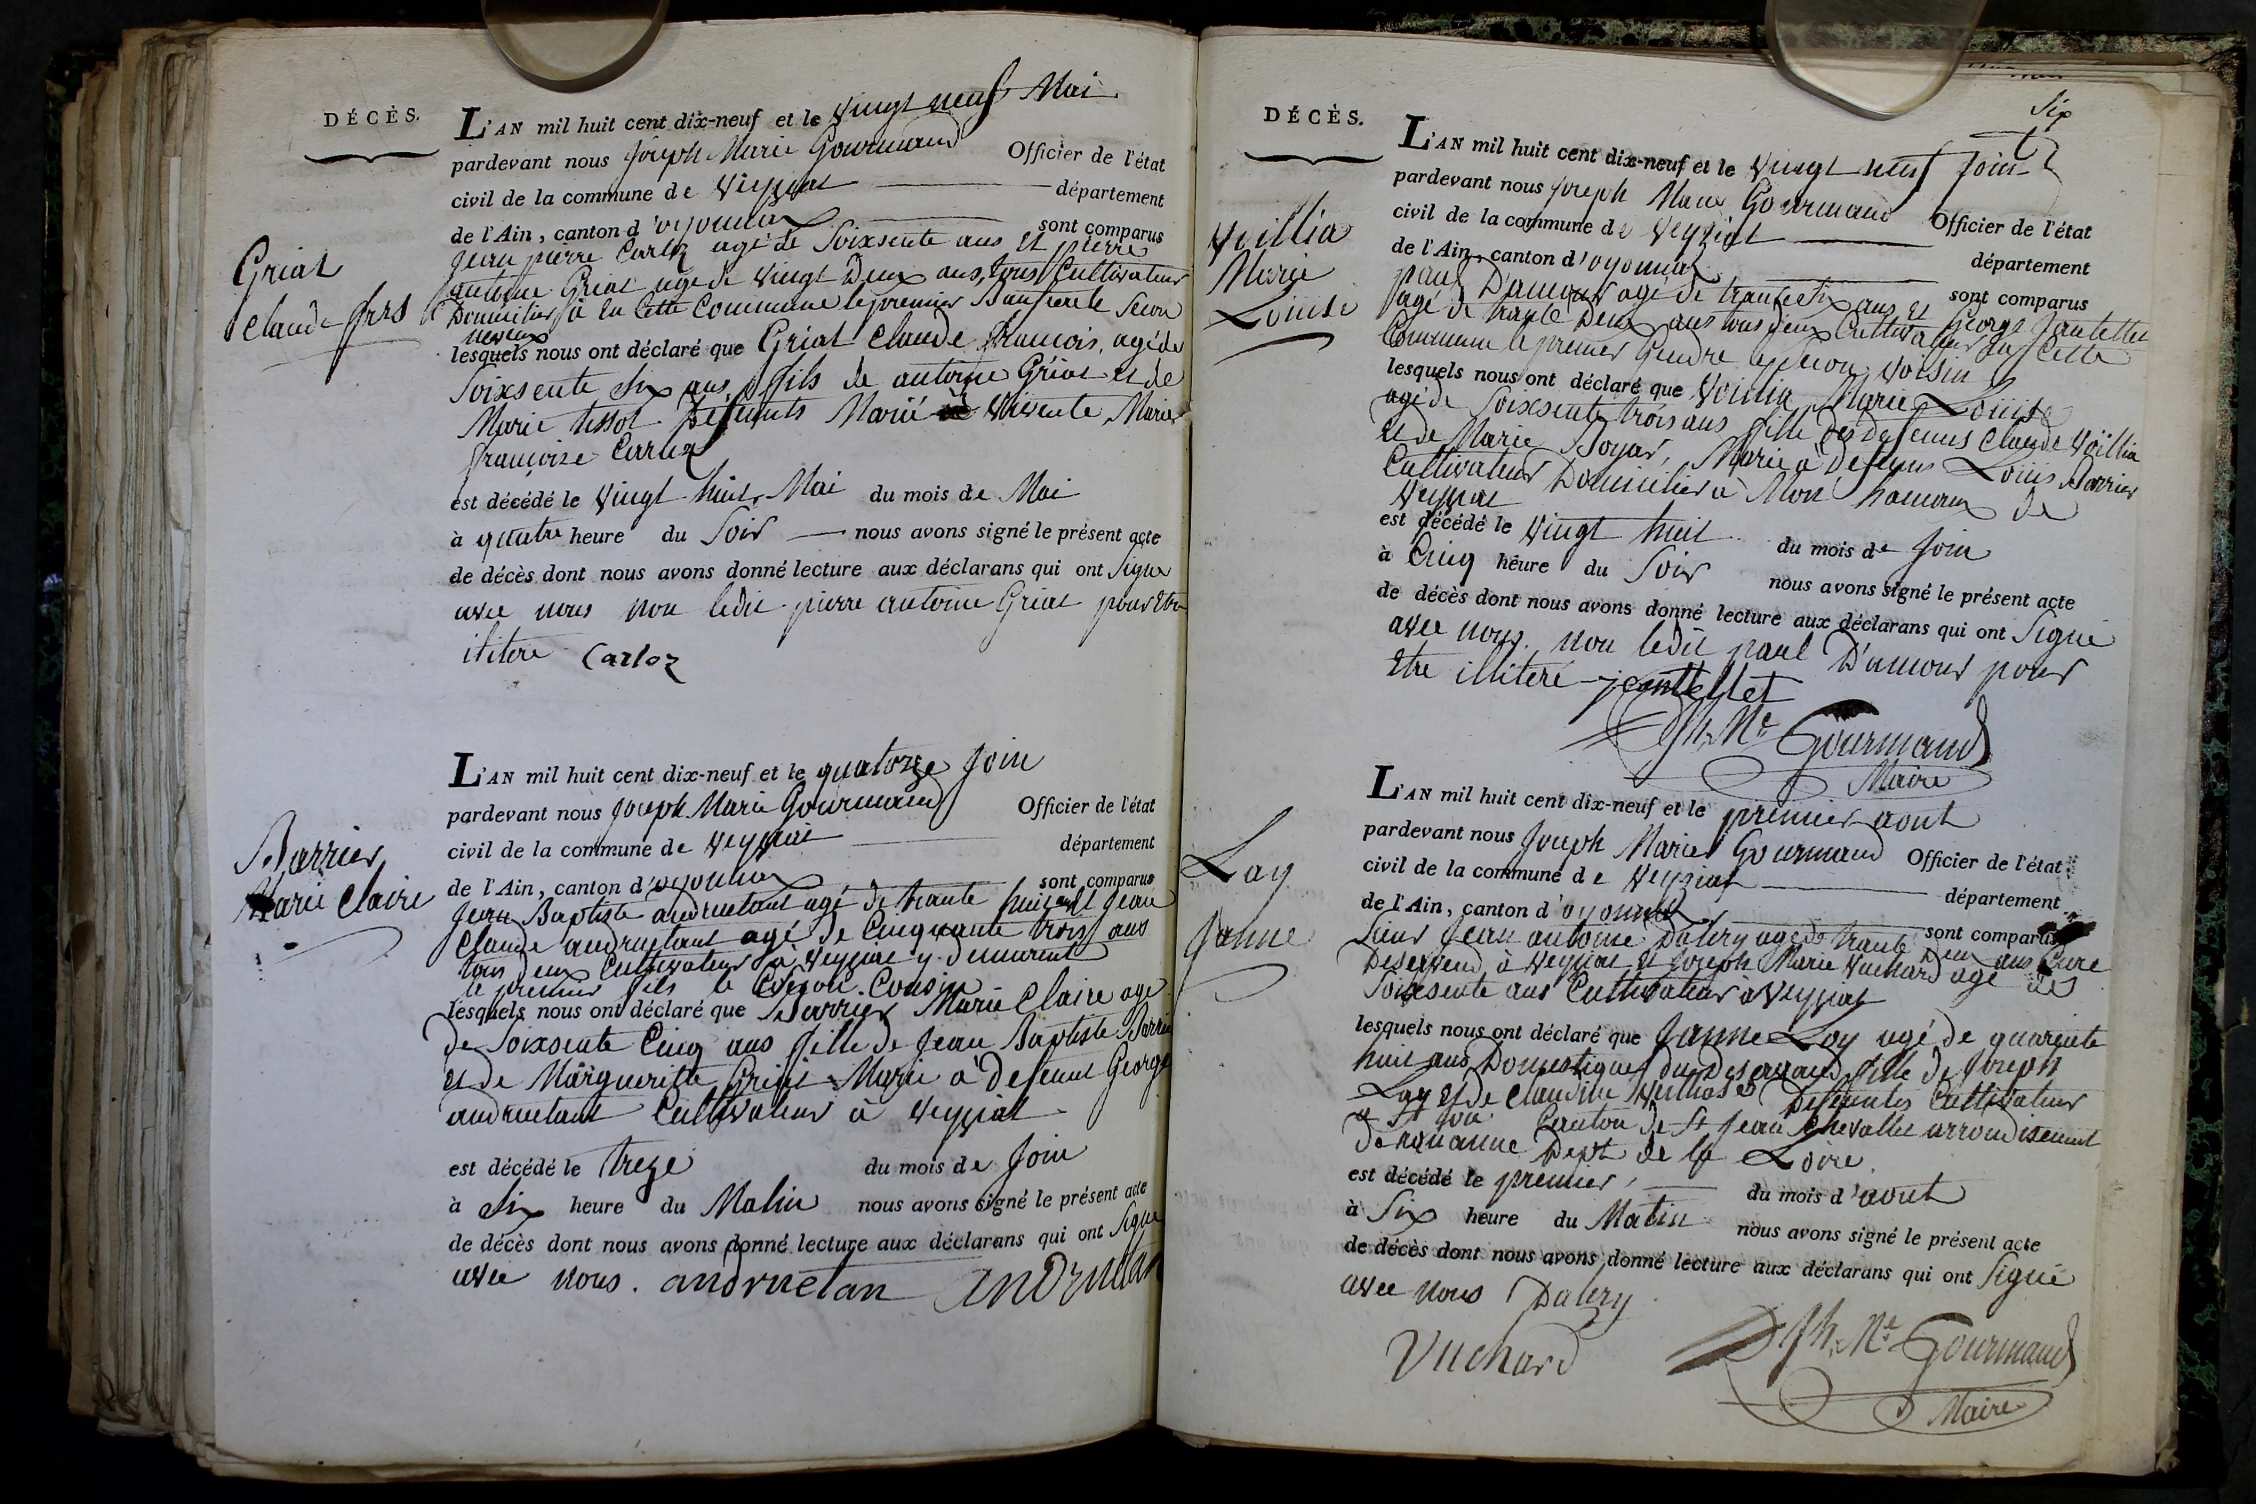 DÉCÈS.
L'AN mil huit cent dix-neuf et le vingt neuf Mai
pardevant nous joseph Marie Gourmand Officier de l'état
civil de la commune de Veyziat département
de l'Ain, canton d'oyonnax sont comparus
jean pierre Carloz agé de Soixsente ans et pierre
antoine Griat agé de vingt Deux ans, tous Cultivateur
Domicilier à la Cette Commune le premier Beaufrere le Secon
neveux
Griat
Claude frrs
lesquels nous ont déclaré que Griat Claude francois, agé de
Soixsente Six ans fils de antoine Griat et de
Marie tissot Defeunts Marié a vivente Marie
françoise Carloz
est décédé le vingt huit Mai du mois de Mai
à quatre heure du Soir nous avons signé le présent acte
de décès dont nous avons donné lecture aux déclarans qui ont Signe
avec nous non ledit pierre antoine Griat pour Etre
ilitere Carloz
L'AN mil huit cent dix-neuf et le quatorze Join
pardevant nous joseph Marie Gourmand Officier de l'état
civil de la commune de Veyziat département
de l'Ain, canton d'oyonnax sont comparus
Barrier
Marie Claire
Jean Baptiste andruetant agé de trante huit et Jean
Claude andruetant agé de Cinquante trois ans
tous deux Cultivateur à Veyziat y demeurent
le premier fils le Secon Cousin
lesquels nous ont déclaré que Barrier Marie Claire age
de Soixsente Cinq ans fille de Jean Baptiste Barrier
et de Marguerite Griat Marie a Defeunt George
andruetant Cultivateur à Veyziat
est décédé le treze du mois de Join
à Six heure du Matin nous avons signé le présent acte
de décès dont nous avons donné lecture aux déclarans qui ont Signe
avec nous. andruetan andruetan
Six
DÉCÈS.
L'AN mil huit cent dix-neuf et le Vingt neuf Join
pardevant nous joseph Marie Gourmand Officier de l'état
civil de la commune de Veyziat département
de l'Ain, canton d'oyonnax sont comparus
Voillia
Marie
Louise
paul D'amour agé de trante Six ans et George Jantellet
agé de trante Deux ans tous deux Cultivateur de Cette
Commune le premier Gendre le Secon voisin
lesquels nous ont déclaré que Voillia Marie Louise
agé de Soixsente trois ans fille Des defeunts Claude Voillia
et de Marie Boyar, Marie a Defeunt Louis Barrier
Cultivateur Domicilier à Mons hameaux de
Veyziat
est décédé le Vingt huit du mois de Join
à Cinq heure du Soir nous avons signé le présent acte
de décès dont nous avons donné lecture aux déclarans qui ont Signé
avec nous non ledit paul D'amour pour
Etre illiteré jeantellet
Jh. Me Gourmand
Maire
L'AN mil huit cent dix-neuf et le premier aout
pardevant nous Joseph Marie Gourmand Officier de l'état
civil de la commune de Veyziat département
de l'Ain, canton d'oyonnax sont comparus
Lay
Janne
Sieur Jean antoine Dalery agé de trante Deux ans Cure
Deservend à Veyziat et Joseph Marie Vuchard agé de
Soixsente ans Cultivateur a Veyziat
lesquels nous ont déclaré que Janne Lay agé de quarente
huit ans Domestique du Deservand fille de Joseph
Lay et de Claudine Defeuntes Cultivateur
a Canton de St jean Chevallet arrondisement
de rouanne Dept de la Loire.
est décédé le premier, du mois d'aout
à Six heure du Matin nous avons signé le présent acte
de décès dont nous avons donné lecture aux déclarans qui ont Signé
avec nous Dalery
Vuchard Jh. Me Gourmand
Maire